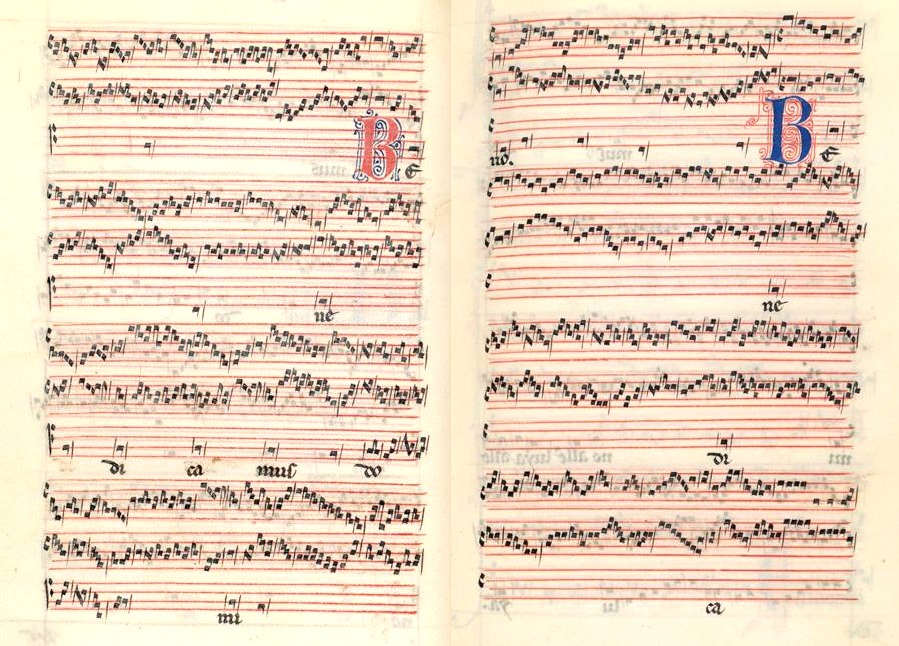 B E
ne
di ca mus do
mi
no. B E
ne
di
ca